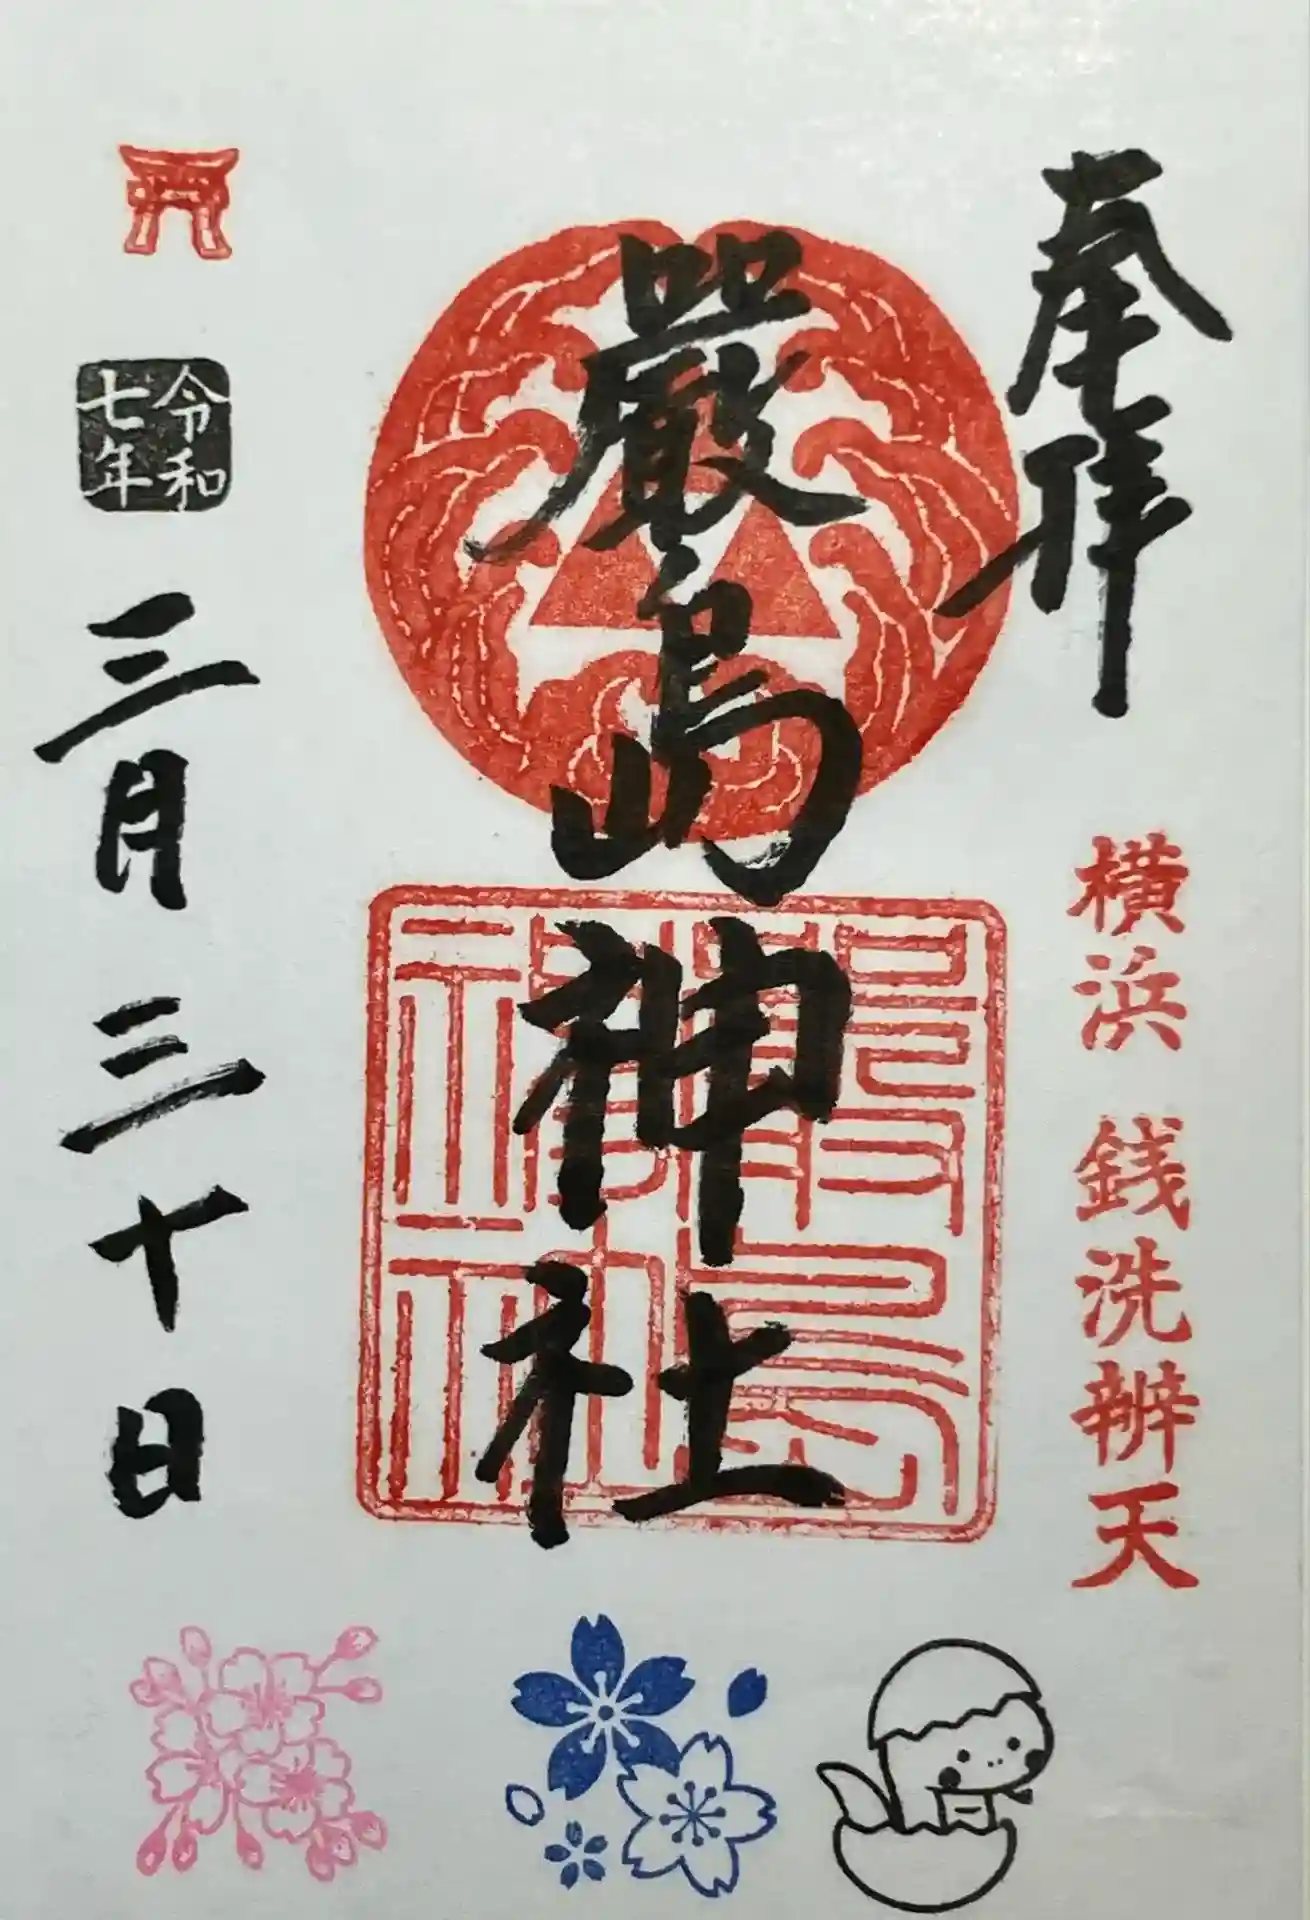 奉拝
横浜 銭洗辨天
嚴島神社
嚴島
神社
令和
七年
三月三十日